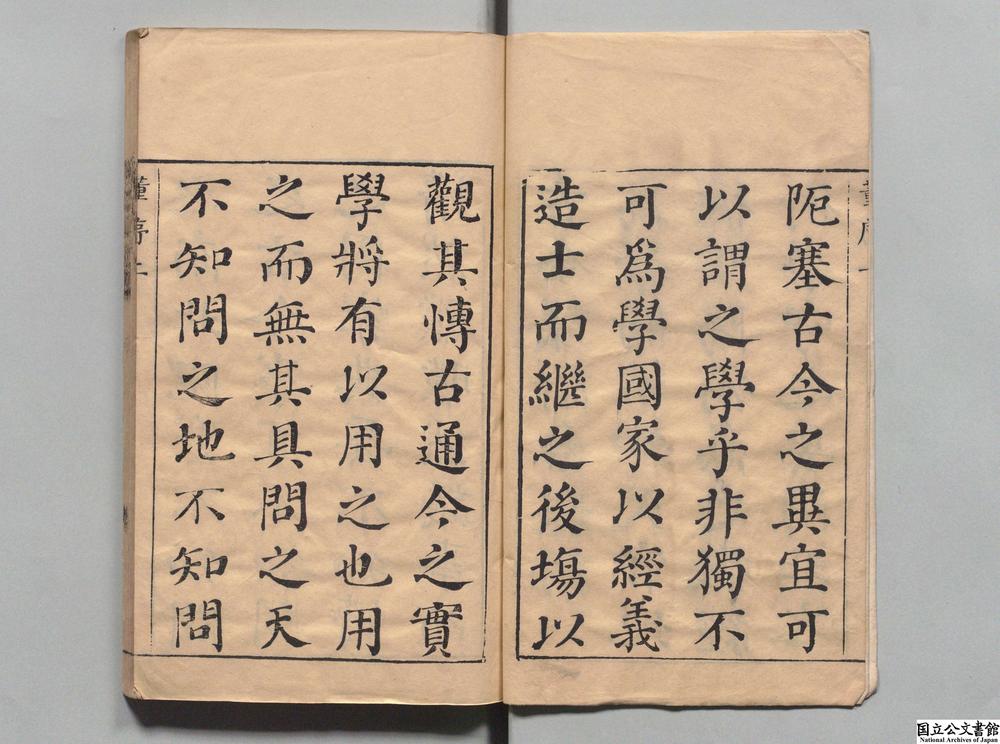 阨塞古今之異宜可
以謂之學乎非獨不
可為學國家以經義
造士而繼之後塲以
觀其慱古通今之實
學將有以用之也用
之而無其具問之天
不知問之地不知問
國立公文書館
National Archives of Japan